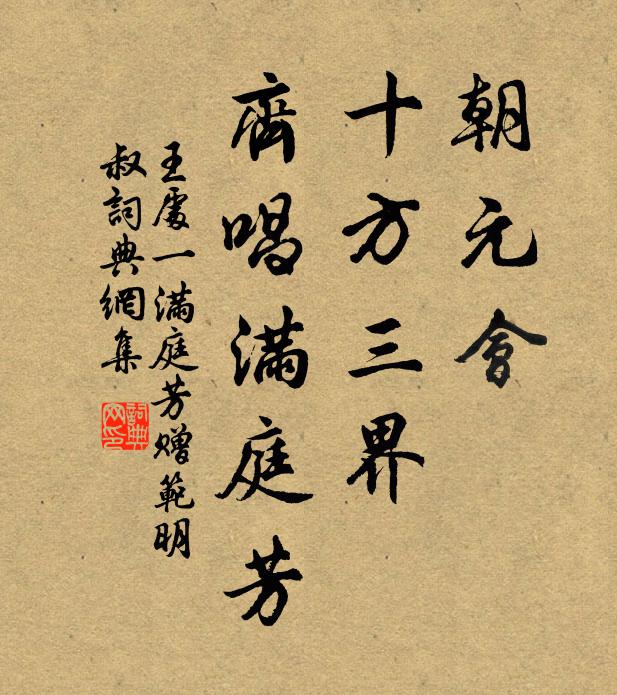 朝元會
十方三界
齊唱滿庭芳
王處一滿庭芳贈範明
叔詞典網集
詞典網印